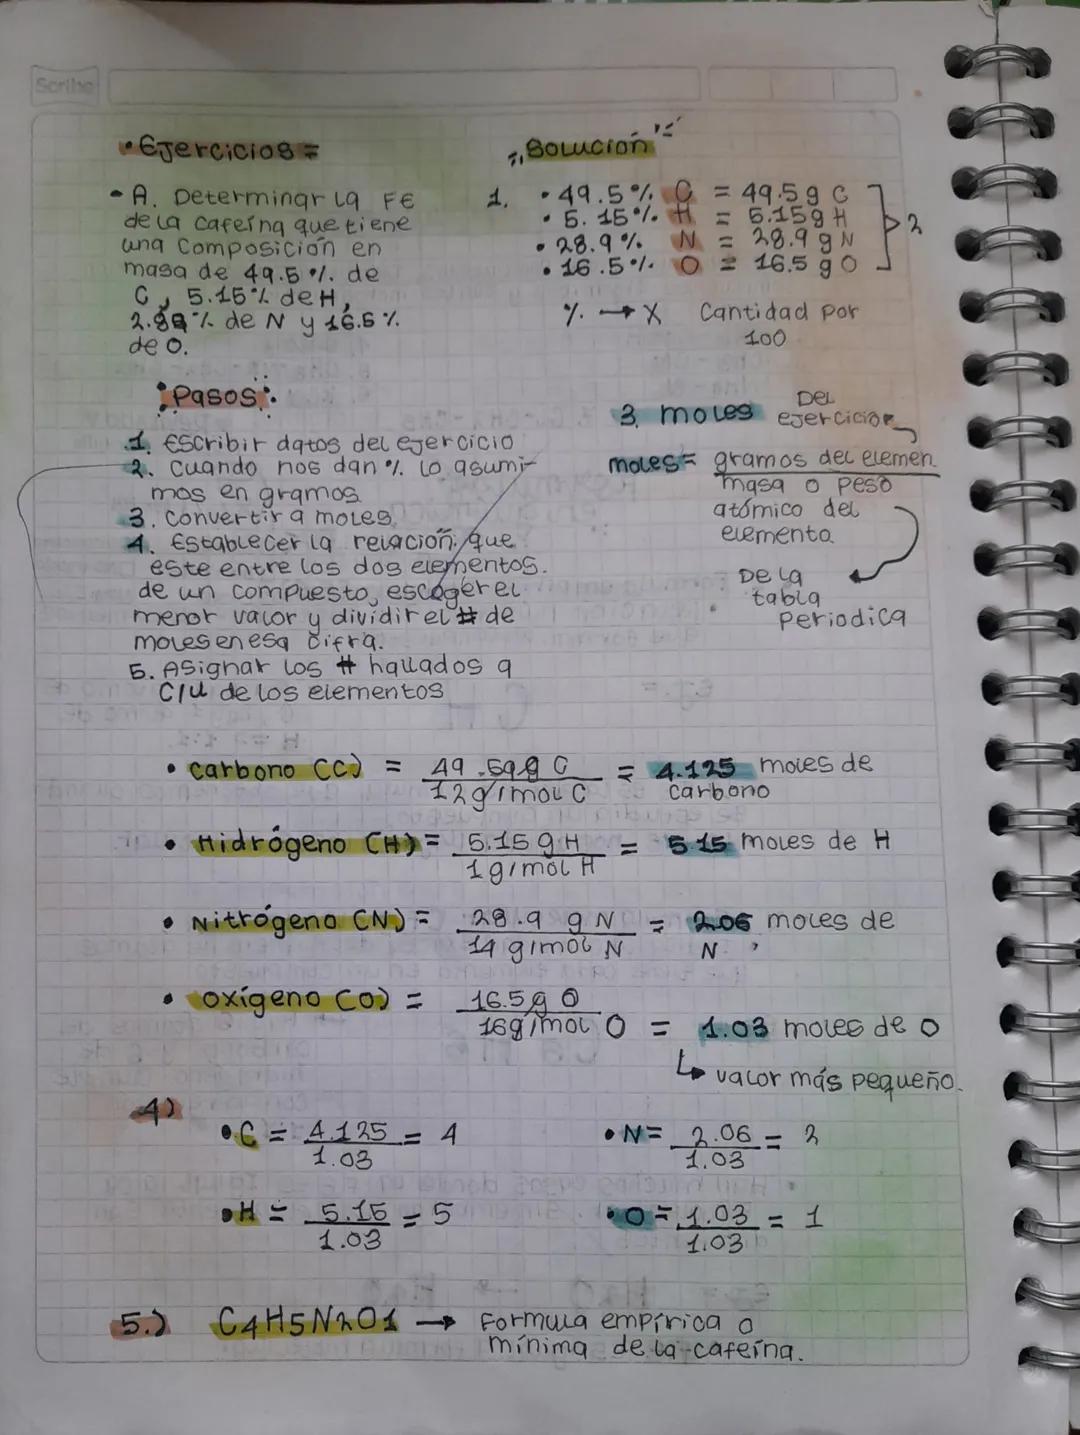 Scribe
• Ejercicios =
- A. Determinar la FE
de la cafeína que tiene
una composición en
masa de 49.5 %. de
C, 5.15 % de H,
2.89 % de N y 16.5 %.
de O.
Solución
1. • 49.5 %. C = 49.5 g C
• 5.15 %. H = 5.15 g H
• 28.9 % N = 28.9 g N
• 16.5 %. O = 16.5 g O
2
%. → X Cantidad por
100
Pasos:
1. Escribir datos del ejercicio
2. Cuando nos dan % lo asumi-
mos en gramos
3. Convertir a moles
4. Establecer la relación que
este entre los dos elementos.
de un compuesto, escoger el
menor valor y dividir el # de
moles en esa cifra.
5. Asignar los # hallados a
C/U de los elementos
3. moles
Del
ejercicio
moles = gramos del elemen.
masa o peso
atómico del
elemento
De la
tabla
periodica
• Carbono (C) = 49.59 g C = 4.125 moles de
12 g/mol C carbono
• Hidrógeno (H) = 5.15 g H = 5.15 moles de H
1 g/mol H
• Nitrógeno (N) = 28.9 g N = 2.06 moles de
14 g/mol N N
• oxígeno (O) = 16.5 g O
16 g/mol O = 1.03 moles de O
↳ valor más pequeño.
4)
• C = 4.125 = 4 • N = 2.06 = 2
1.03 1.03
• H = 5.15 = 5 • O = 1.03 = 1
1.03 1.03
5.) C4H5N2O1 → Formula empírica o
mínima de la cafeína.